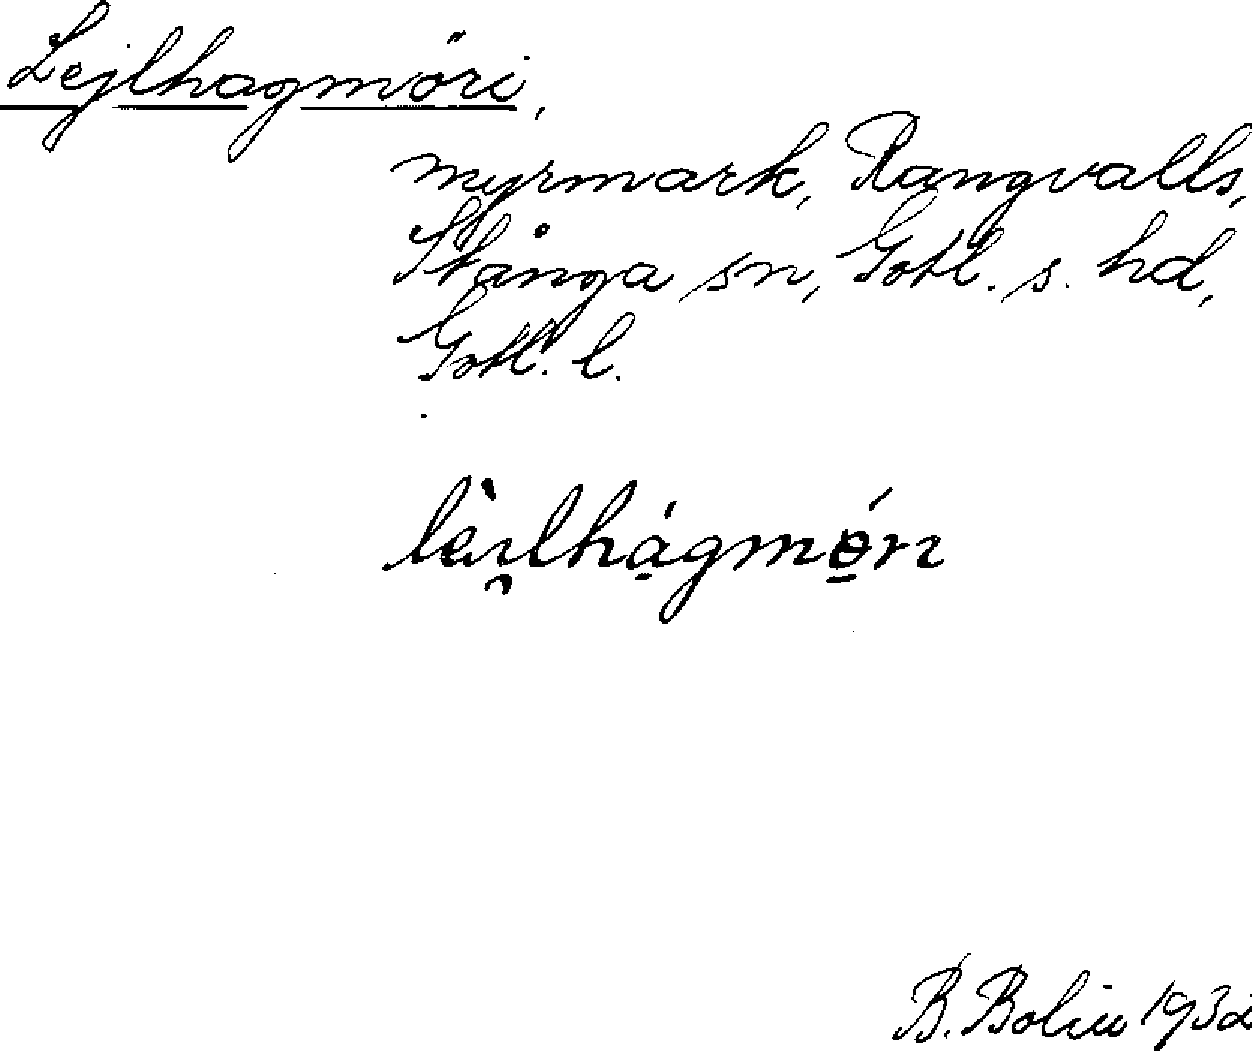 Lejlhagmöri,
myrmark, Rangvalls,
Stånga sn, Gotl. s. hd,
Gotl. l.
B. Bolin 1932